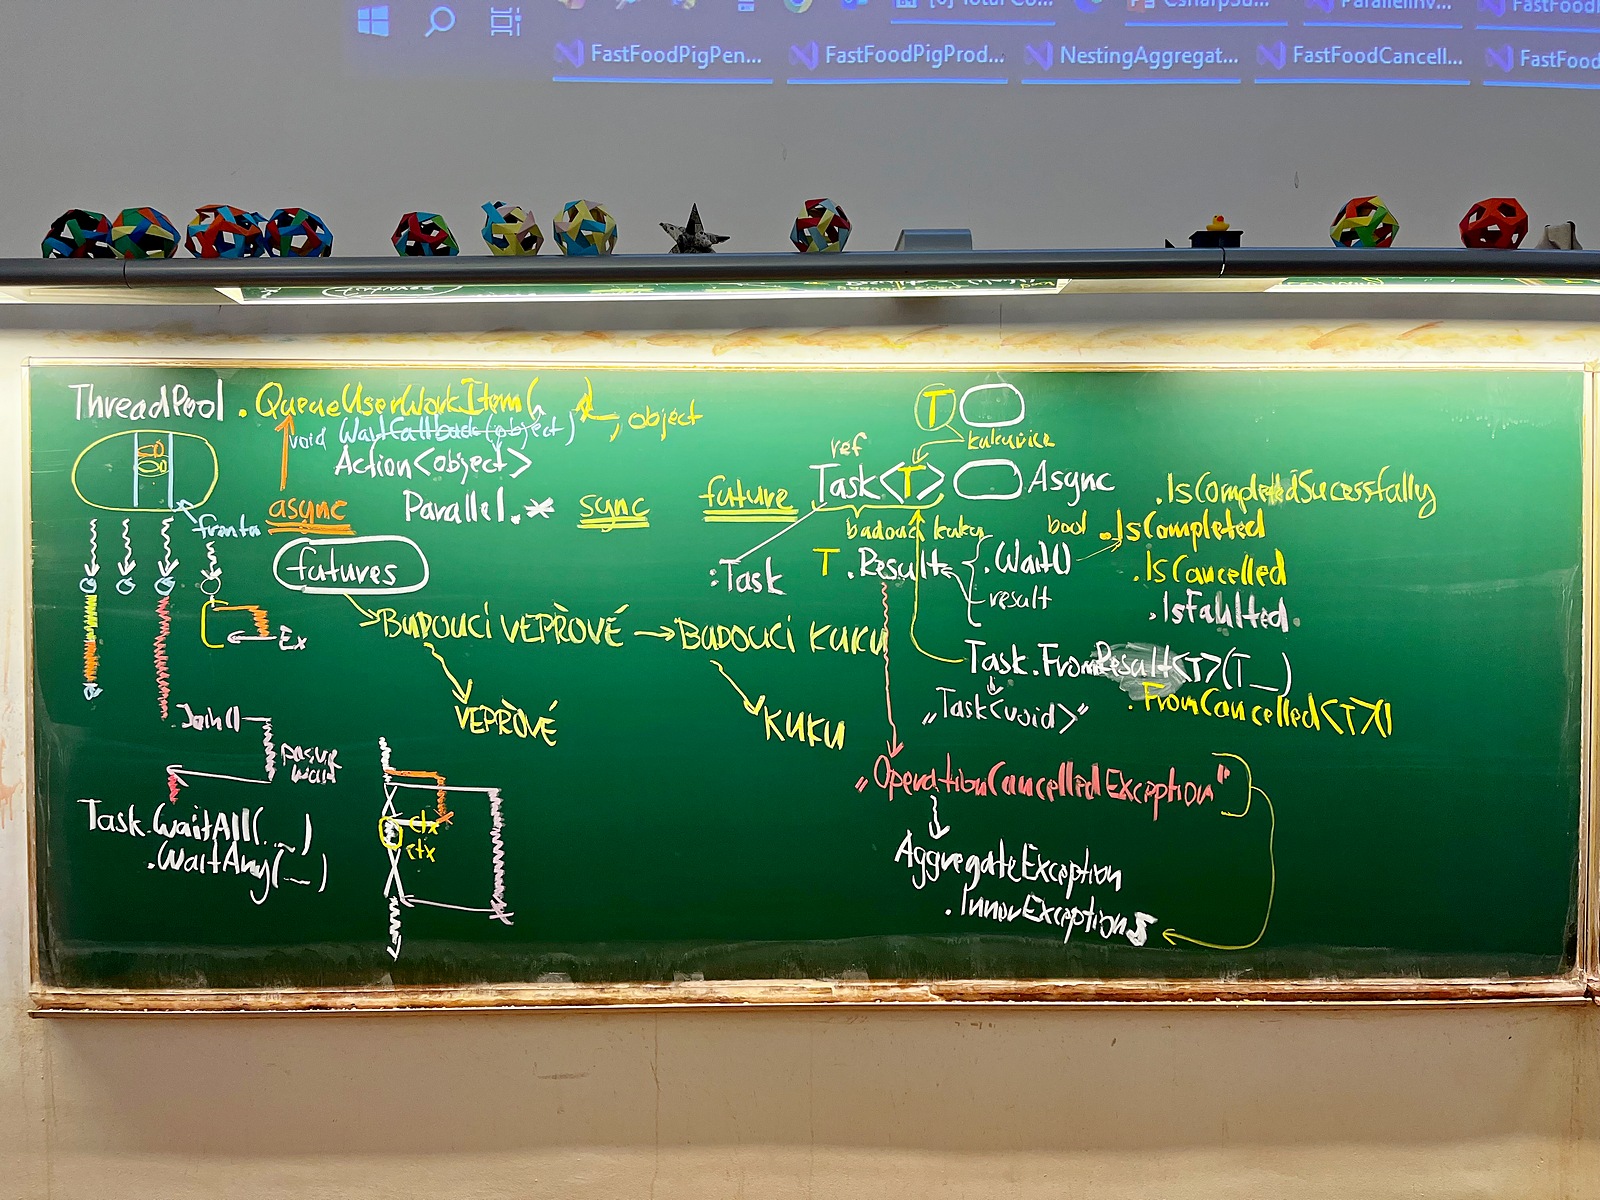 FastFoodPigPen...
FastFoodPigProd...
NestingAggregat...
FastFoodCancell...
ThreadPool . QueueUserWorkItem( , object
void WaitCallback(object)
Action<object>
async
Parallel.*
sync
fronta
futures
BUDOUCÍ VEPŘOVÉ → BUDOUCÍ KUKU
VEPŘOVÉ
KUKU
Ex
Join()
pasiv
wait
Task.WaitAll(...)
.WaitAny(...)
ctx
ctx
T
kukuřice
ref
future
Task<T> Async
budoucí kuku
:Task
T .Result
.Wait()
result
.IsCompletedSucessfully
bool .IsCompleted
.IsCancelled
.IsFaulted
Task.FromResult<T>(T _)
"Task<void>"
.FromCancelled<T>()
„OperationCancelledException"
AggregateException
.InnerExceptions